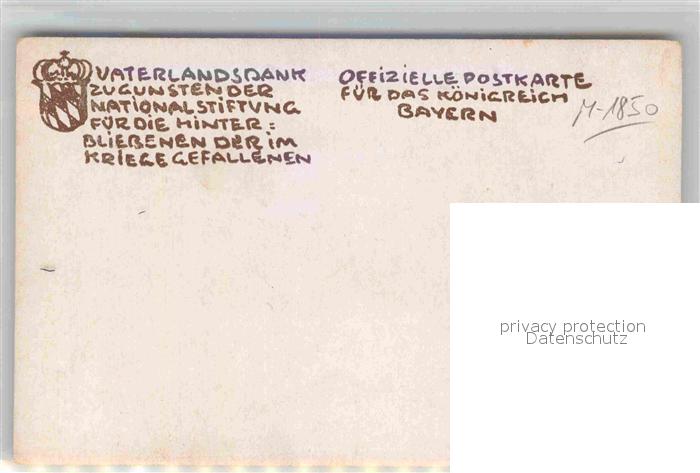 VATERLANDSDANK
ZUGUNSTEN DER
NATIONALSTIFTUNG
FÜR DIE HINTER:
BLIEBENEN DER IM
KRIEGE GEFALLENEN
OFFIZIELLE POSTKARTE
FÜR DAS KÖNIGREICH
BAYERN
M-1850
privacy protection
Datenschutz